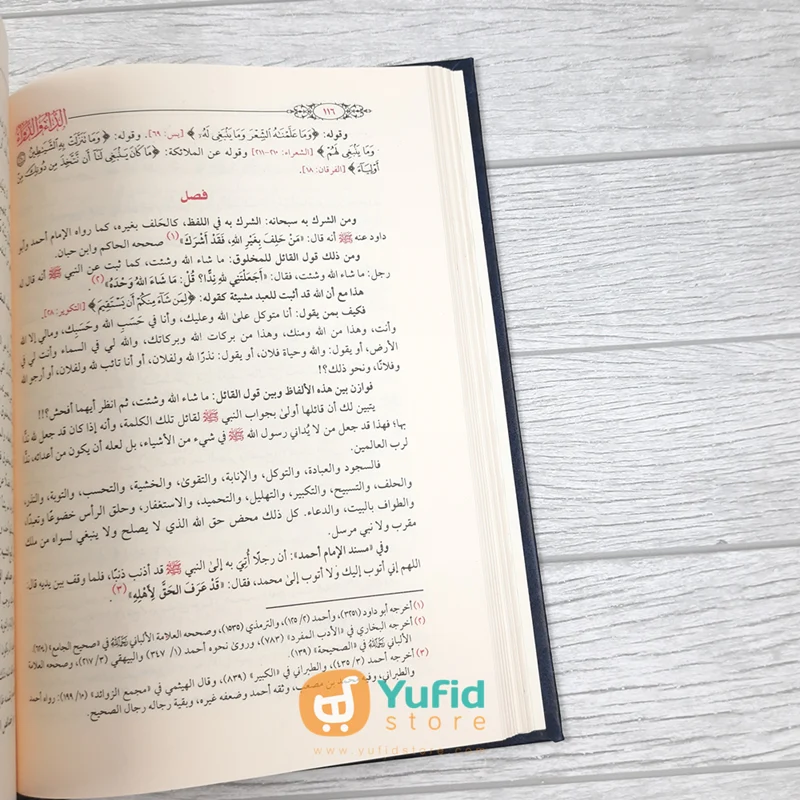 الداء والدواء
١١٦
وقوله: ﴿وَمَا عَلَّمْنَاهُ الشِّعْرَ وَمَا يَنْبَغِي لَهُ﴾ [يس: ٦٩]. وقوله: ﴿وَمَا تَنَزَّلَتْ بِهِ الشَّيَاطِينُ
وَمَا يَنْبَغِي لَهُمْ﴾ [الشعراء: ٢١٠-٢١١] وقوله عن الملائكة: ﴿مَا كَانَ يَنْبَغِي لَنَا أَنْ نَتَّخِذَ مِنْ دُونِكَ مِنْ
أَوْلِيَاءَ﴾ [الفرقان: ١٨].
فصل
ومن الشرك به سبحانه: الشرك به في اللفظ، كالحَلف بغيره، كما رواه الإمام أحمد وأبو
داود عنه ﷺ أنه قال: «مَنْ حَلِفَ بِغَيْرِ اللهِ، فَقَدْ أَشْرَكَ»(١) صححه الحاكم وابن حبان.
ومن ذلك قول القائل للمخلوق: ما شاء الله وشئت، كما ثبت عن النبي ﷺ أنه قال له
رجل: ما شاء الله وشئت، فقال: «أَجَعَلْتَنِي لِلهِ نِدًّا؟ قُلْ: مَا شَاءَ اللهُ وَحْدَهُ»(٢)
هذا مع أن الله قد أثبت للعبد مشيئة كقوله: ﴿لِمَنْ شَاءَ مِنْكُمْ أَنْ يَسْتَقِيمَ﴾ [التكوير: ٢٨].
فكيف بمن يقول: أنا متوكل على الله وعليك، وأنا في حَسَبِ الله وحَسَبِك، ومالي إلا الله
وأنت، وهذا من الله ومنك، وهذا من بركات الله وبركاتك، والله لي في السماء وأنت لي في
الأرض، أو يقول: والله وحياة فلان، أو يقول: نذرًا لله ولفلان، أو أنا تائب لله ولفلان، أو أرجو الله
وفلانًا، ونحو ذلك؟!
فوازن بين هذه الألفاظ وبين قول القائل: ما شاء الله وشئت، ثم انظر أيهما أفحش؟!!
يتبين لك أن قائلها أولى بجواب النبي ﷺ لقائل تلك الكلمة، وأنه إذا كان قد جعل لله ندًّا
بها؛ فهذا قد جعل من لا يُداني رسول الله ﷺ في شيء من الأشياء، بل لعله أن يكون من أعدائه، ندًّا
لرب العالمين.
فالسجود والعبادة، والتوكل، والإنابة، والتقوى، والخشية، والتحسب، والتوبة، والنذر،
والحلف، والتسبيح، والتكبير، والتهليل، والتحميد، والاستغفار، وحلق الرأس خضوعًا وتعبدًا،
والطواف بالبيت، والدعاء. كل ذلك محض حق الله الذي لا يصلح ولا ينبغي لسواه من ملك
مقرب ولا نبي مرسل.
وفي «مسند الإمام أحمد»: أن رجلًا أُتِيَ به إلى النبي ﷺ قد أذنب ذنبًا، فلما وقف بين يديه قال:
اللهم إني أتوب إليك ولا أتوب إلى محمد، فقال: «قَدْ عَرَفَ الحَقَّ لِأَهْلِهِ»(٣).
(١) أخرجه أبو داود (٣٢٥١)، وأحمد (٢/ ١٢٥)، والترمذي (١٥٣٥)، وصححه العلامة الألباني رحمه الله في «صحيح الجامع»
(٢) أخرجه البخاري في «الأدب المفرد» (٧٨٣)، وروى نحوه أحمد (١/ ٣٤٧) والبيهقي (٣/ ٢١٧)، وصححه العلامة
الألباني رحمه الله في «الصحيحة» (١٣٩).
(٣) أخرجه أحمد (٣/ ٤٣٥)، والطبراني في «الكبير» (٨٣٩)، وقال الهيثمي في «مجمع الزوائد» (١٠/ ١٩٩): رواه أحمد
والطبراني، وفيه محمد بن مصعب، وثقه أحمد وضعفه غيره، وبقية رجاله رجال الصحيح.
Yufid
store
www.yufidstore.com